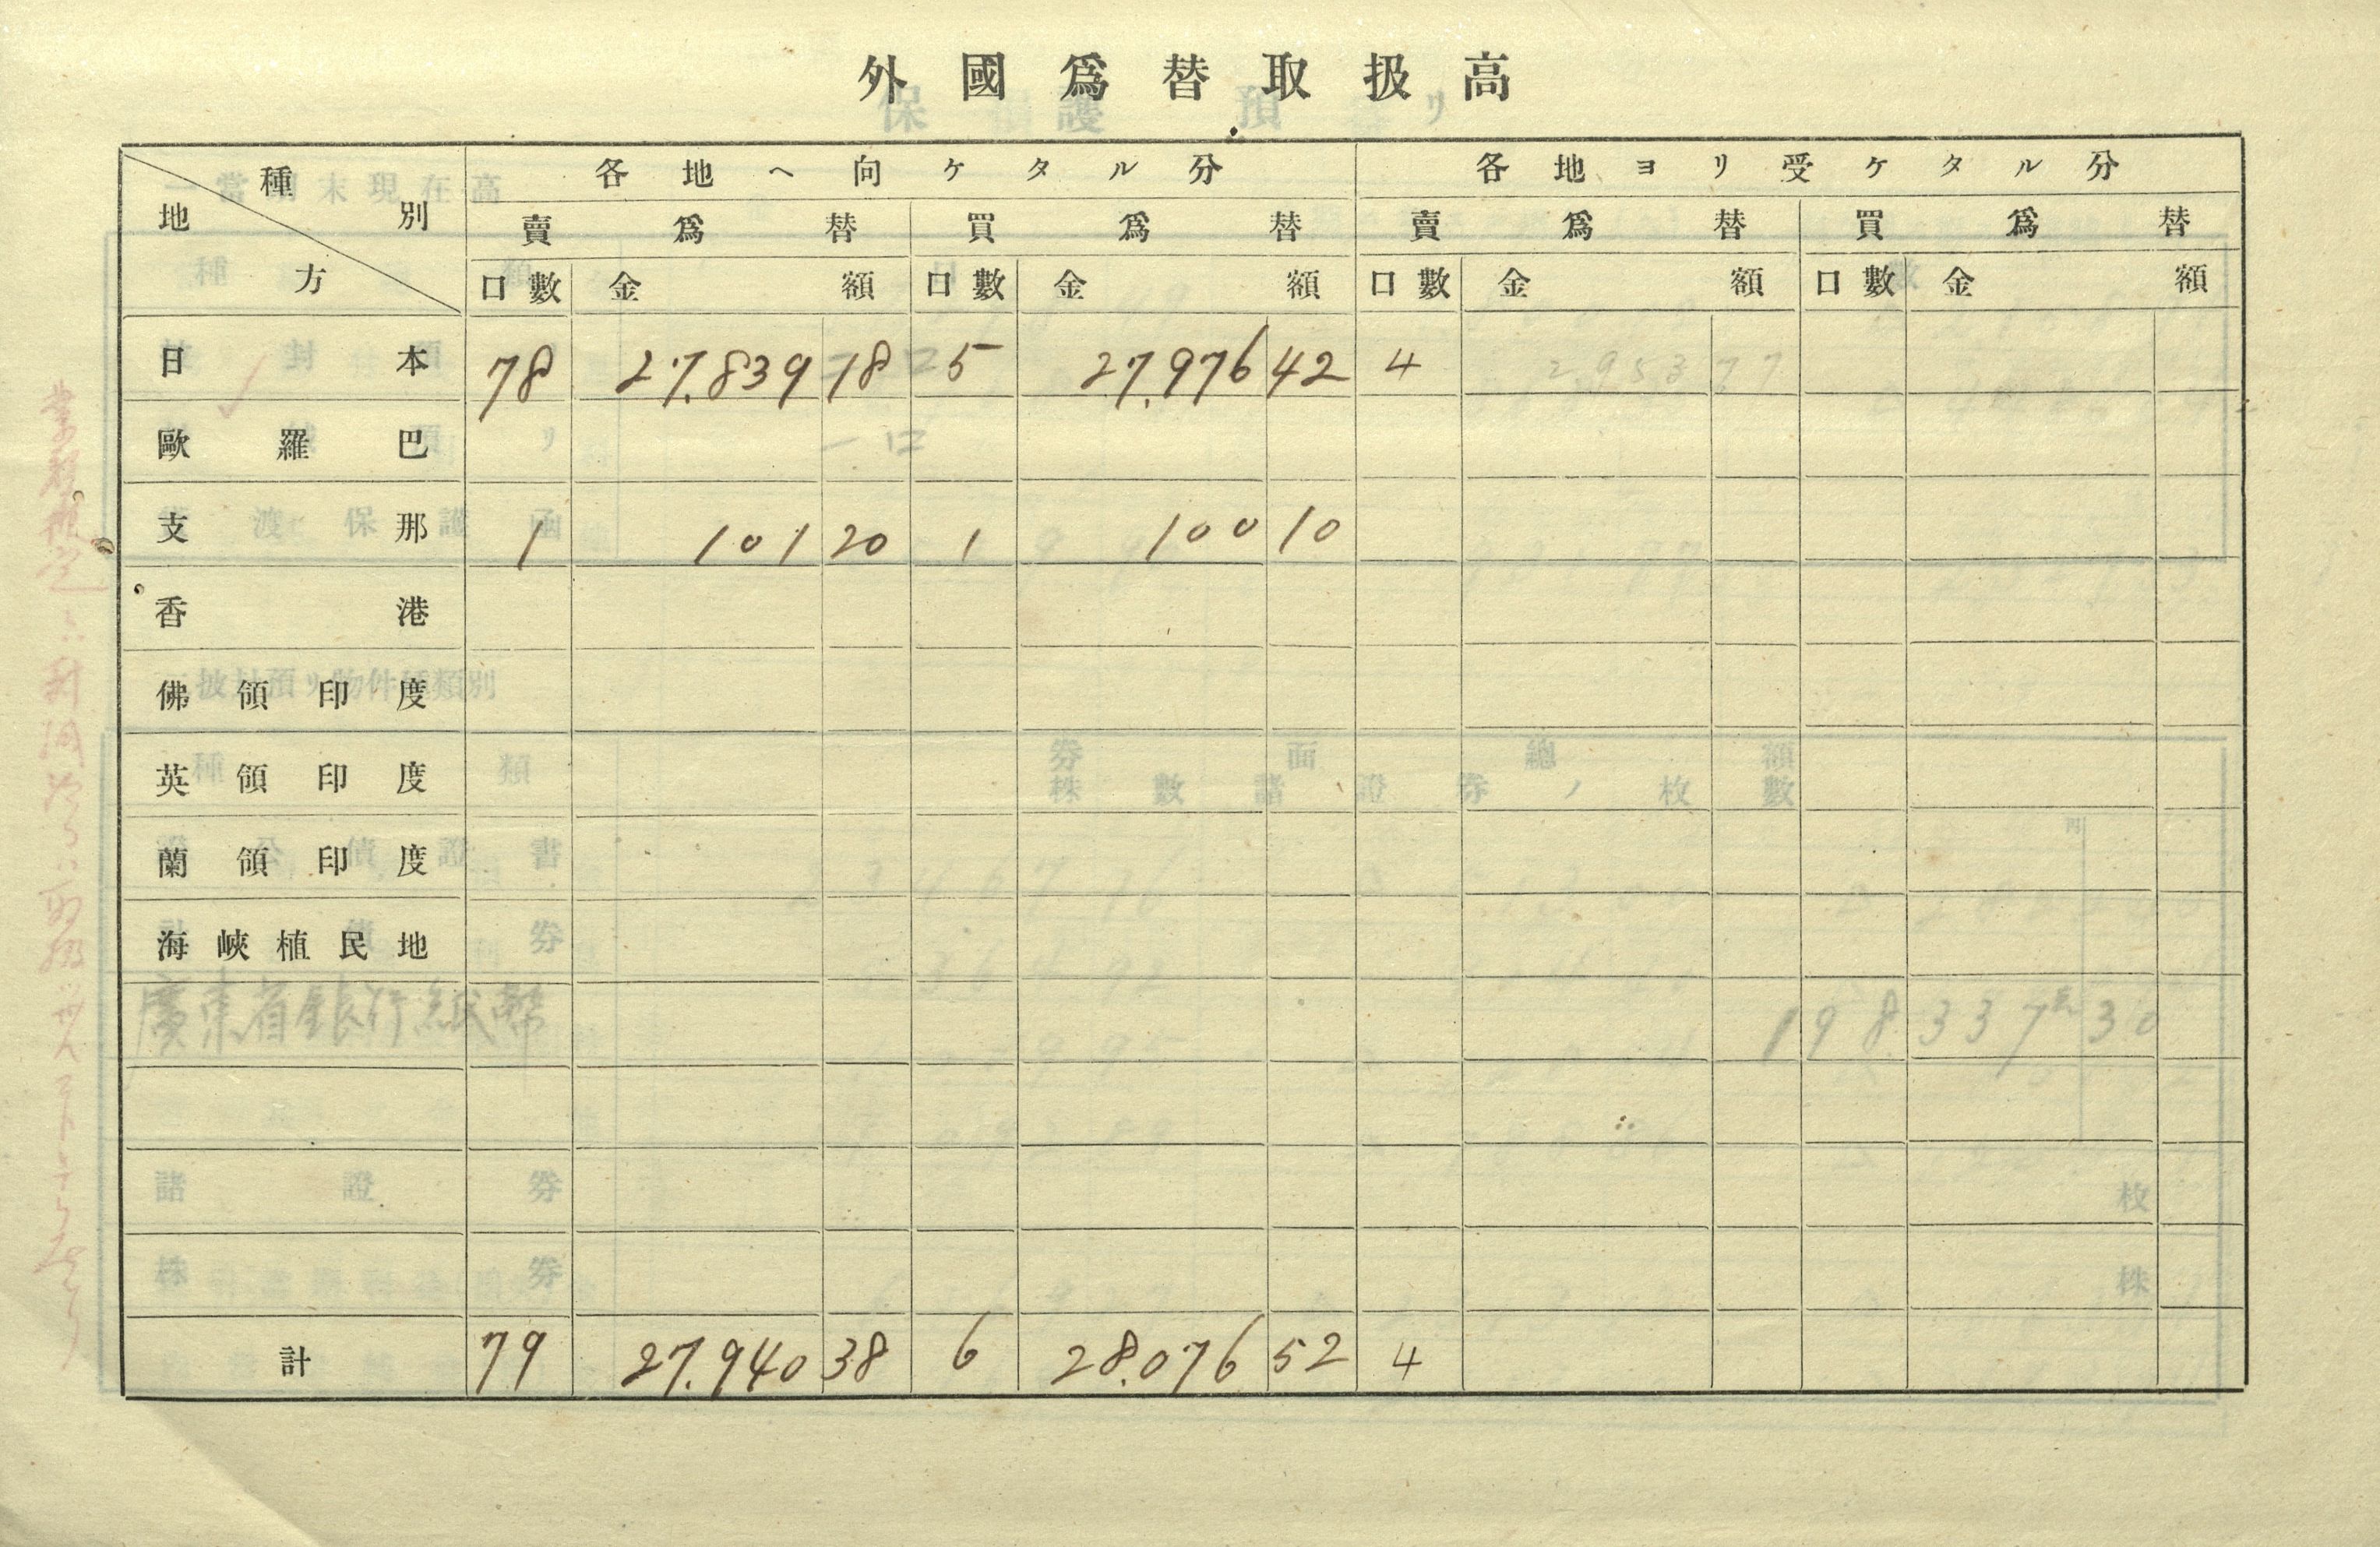 外國爲替取扱高
種別
地方
各地ヘ向ケタル分 各地ヨリ受ケタル分
賣爲替 買爲替 賣爲替 買爲替
口數 金額 口數 金額 口數 金額 口數 金額
日本 78 27.839 18 5 27.976 42 4 2953 77
歐羅巴 一口
支那 1 101 20 1 100 10
香港
佛領印度
英領印度
蘭領印度
海峽植民地
廣東省銀行紙幣 198 337 30
計 79 27.940 38 6 28.076 52 4